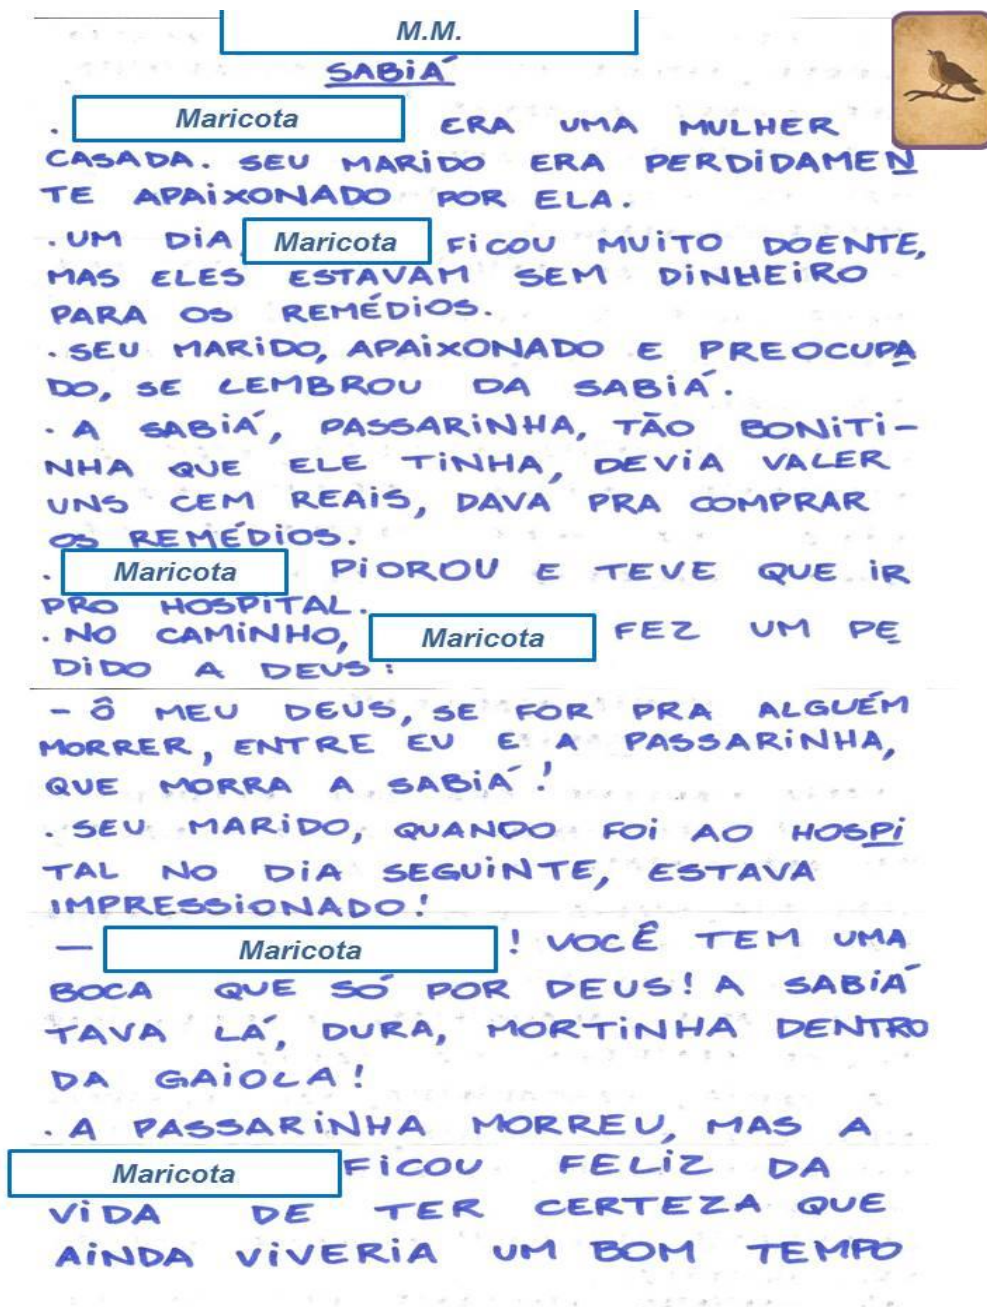 M.M.
SABIÁ
. Maricota ERA UMA MULHER
CASADA. SEU MARIDO ERA PERDIDAMEN
TE APAIXONADO POR ELA.
. UM DIA Maricota FICOU MUITO DOENTE,
MAS ELES ESTAVAM SEM DINHEIRO
PARA OS REMÉDIOS.
. SEU MARIDO, APAIXONADO E PREOCUPA
DO, SE LEMBROU DA SABIÁ.
. A SABIÁ, PASSARINHA, TÃO BONITI-
NHA QUE ELE TINHA, DEVIA VALER
UNS CEM REAIS, DAVA PRA COMPRAR
OS REMÉDIOS.
. Maricota PIOROU E TEVE QUE IR
PRO HOSPITAL.
. NO CAMINHO, Maricota FEZ UM PE
DIDO A DEUS:
- Ô MEU DEUS, SE FOR PRA ALGUÉM
MORRER, ENTRE EU E A PASSARINHA,
QUE MORRA A SABIÁ!
. SEU MARIDO, QUANDO FOI AO HOSPI
TAL NO DIA SEGUINTE, ESTAVA
IMPRESSIONADO!
— Maricota ! VOCÊ TEM UMA
BOCA QUE SÓ POR DEUS! A SABIÁ
TAVA LÁ, DURA, MORTINHA DENTRO
DA GAIOLA!
. A PASSARINHA MORREU, MAS A
Maricota FICOU FELIZ DA
VIDA DE TER CERTEZA QUE
AINDA VIVERIA UM BOM TEMPO